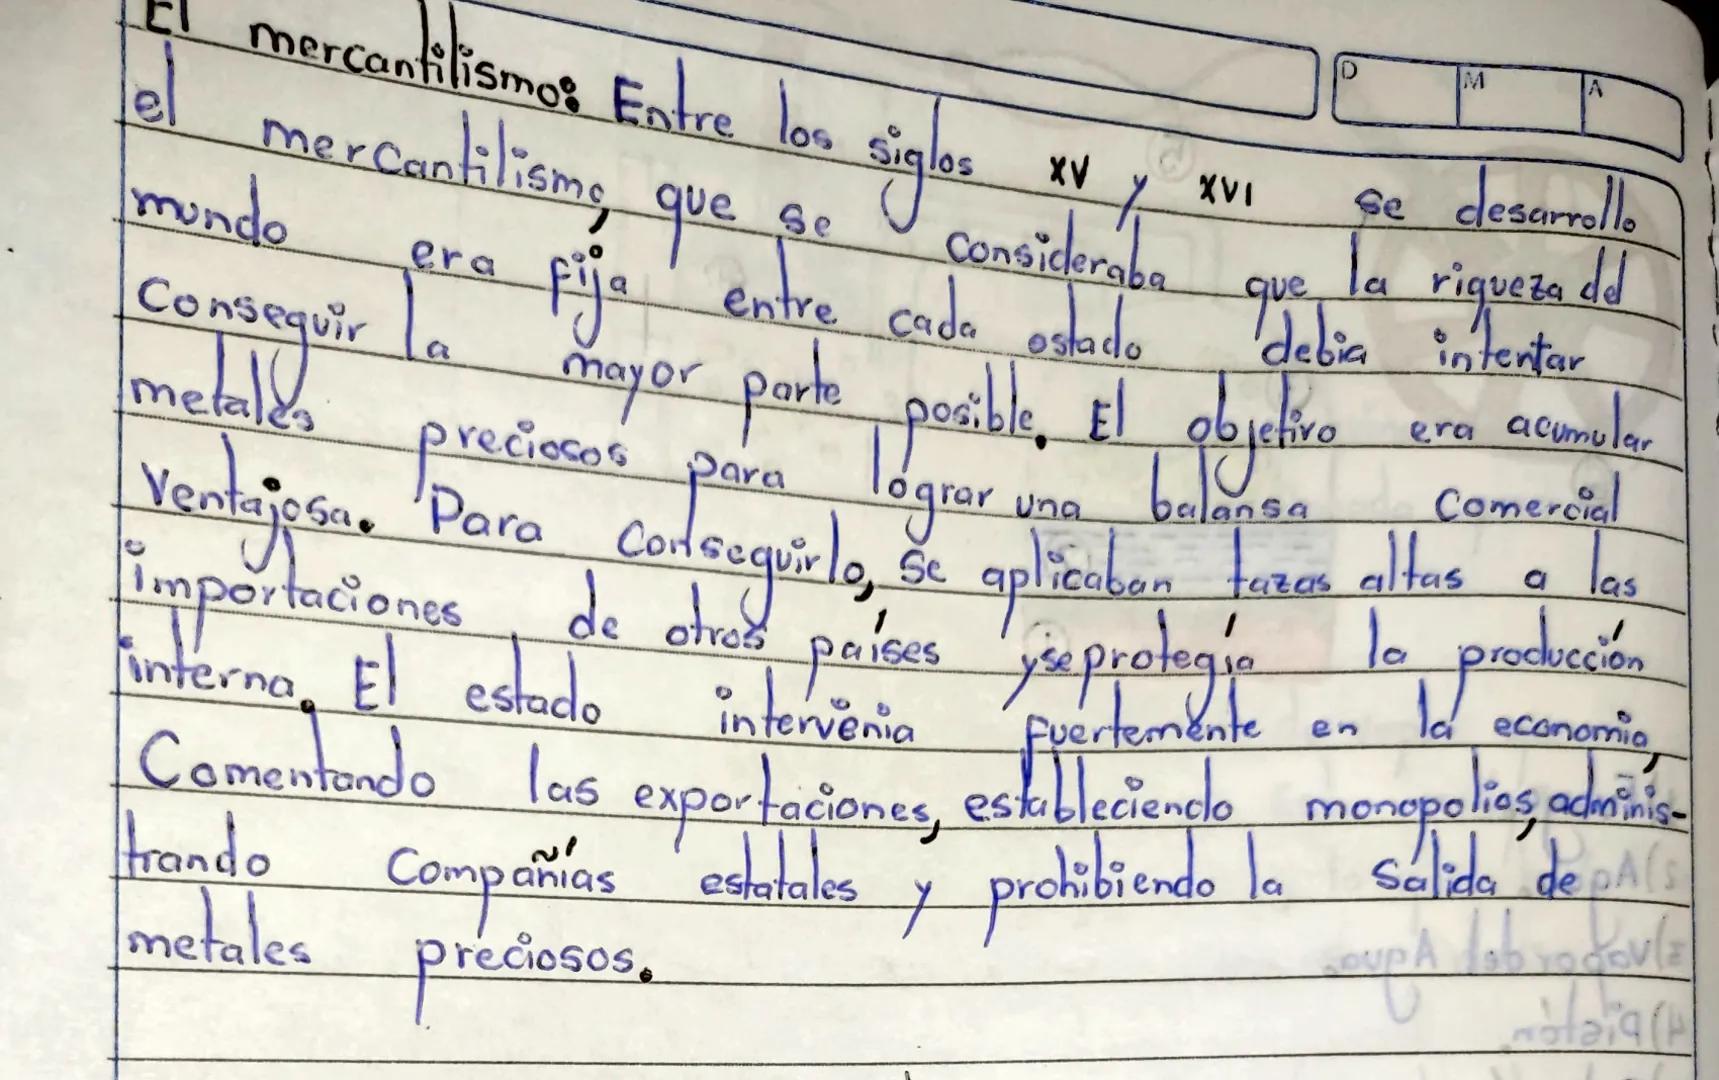 El mercantilismo: Entre los siglos XV y XVI se desarrollo
el mercantilismo, que se consideraba que la riqueza del
mundo era fija entre cada estado debia intentar
Conseguir la mayor parte posible. El objetivo era acumular
metales preciosos para lograr una balansa Comercial
Ventajosa. Para conseguirlo, se aplicaban tazas altas a las
importaciones de otros países y se protegía la producción
interna. El estado intervenia fuertemente en la economia,
Comentando las exportaciones, estableciendo monopolios, adminis-
trando Compañías estatales y prohibiendo la Salida de
metales preciosos.
D M A